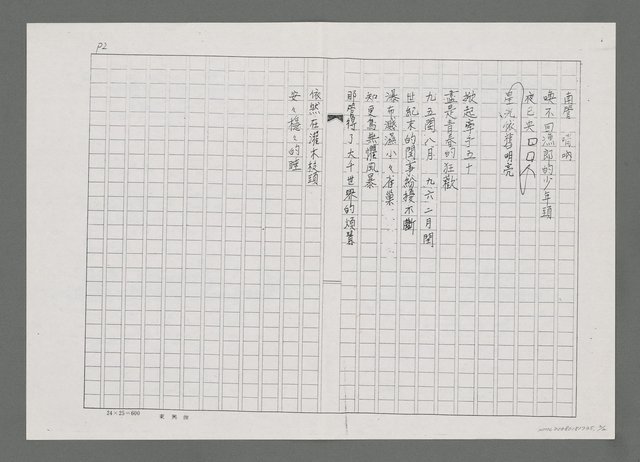 喚不回漁郎的少年頭
夜已央口口人
星光依舊明亮
掀起牽手五十
盡是青春的狂歡
九五閏八月 九六二月閏
世紀末的閏事紛擾不斷
瀑布濺濕小々雀巢
知更鳥無懼風暴
那管得了大千世界的煩囂
依然在灌木枝頭
安々穩々的睡
P2
24×25=600